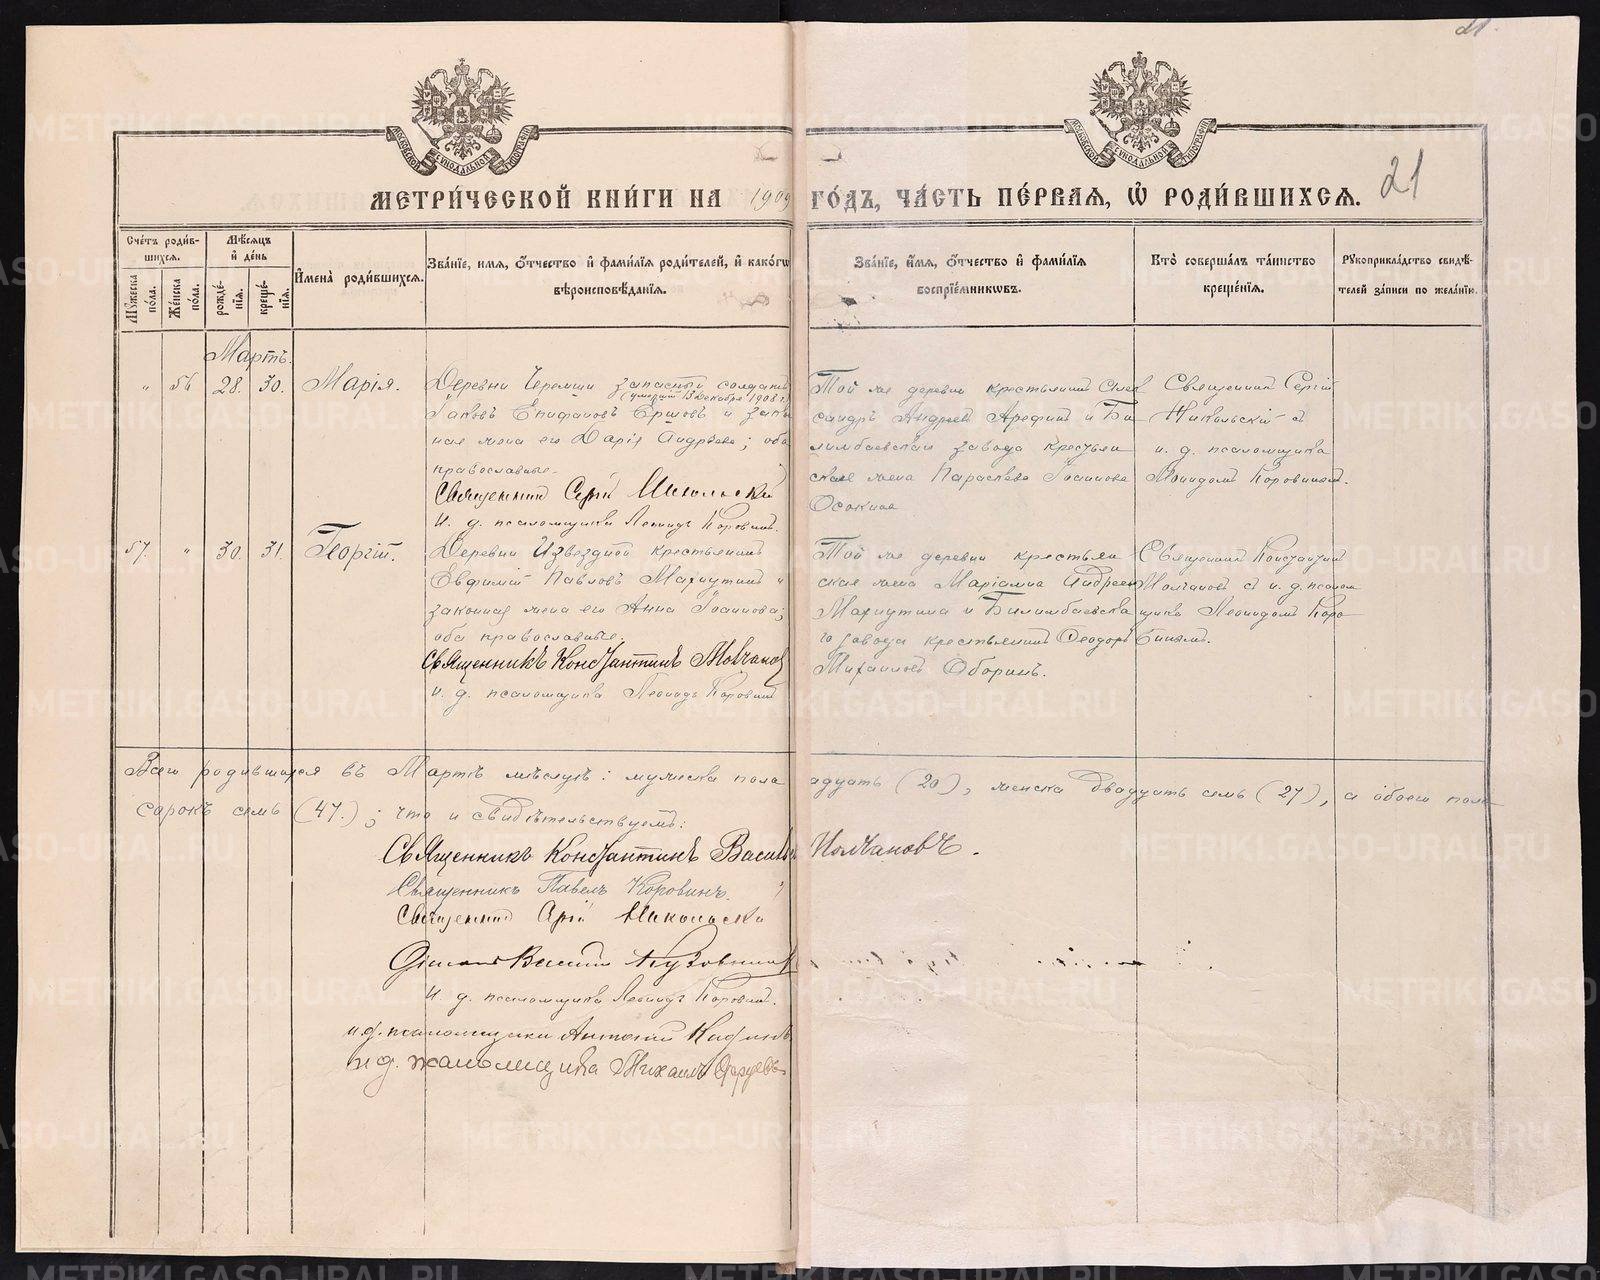 21
МОСКОВСКОЙ СѴНОДАЛЬНОЙ ТИПОГРАФІИ
МОСКОВСКОЙ СѴНОДАЛЬНОЙ ТИПОГРАФІИ
МЕТРИ́ЧЕСКОЙ КНИ́ГИ НА 1909 ГО́ДЪ, ЧА́СТЬ ПЕ́РВАЯ, Ѡ РОДИ́ВШИХСЯ. 21
Сче́тъ роди́вшихся.
Мѣ́сяцъ и де́нь
Мужеска по́ла.
Же́нска по́ла.
рожде́нїя.
креще́нїя.
Имена̀ роди́вшихся.
Зва́нїе, имя, о́тчество и фами́лїя роди́телей, и како́гѡ вѣроисповѣ́данїя.
Зва́нїе, и́мя, о́тчество и фами́лїя воспрїе́мникѡвъ.
Кто̀ соверша́лъ та́инство креще́нїя.
Рукоприкла́дство свидѣ́телей за́писи по жела́нїю.
Мартъ.
„ 56 28. 30. Марія.
Деревни Черемши запасный солдатъ
(умершій 13 декабря 1908 г.)
Іаковъ Епифановъ Ершовъ и закон
ная жена его Дарія Андреева; оба
православные.
Священникъ Сергій Никольскій
И. д. псаломщика Леонидъ Коровинъ.
Той же деревни крестьянинъ Алек
сандръ Андреевъ Арефинъ и Би
лимбаевскаго завода крестьян
ская жена Параскева Іоаннова
Осокина
Священникъ Сергій
Никольскій съ
и. д. псаломщика
Леонидомъ Коровинымъ.
57. „ 30. 31. Георгій.
Деревни Извездной крестьянинъ
Евфимій Павловъ Махнутинъ и
законная жена его Анна Іоаннова;
оба православные.
Священникъ Константинъ Молчановъ
И. д. псаломщика Леонидъ Коровинъ
Той же деревни крестьян
ская жена Маріамна Андреева
Махнутина и Билимбаевска
го завода крестьянинъ Ѳеодоръ
Михаиловъ Оборинъ.
Священникъ Константинъ
Молчановъ съ и. д. псалом
щика Леонидомъ Коро
винымъ.
Всего родившихся въ Мартѣ мѣсяцѣ: мужеска пола адцать (20), женска двадцать семь (27), а обоего пола
сорокъ семь (47.); что и свидѣтельствуемъ:
Священникъ Константинъ Васильевъ Молчановъ.
Священникъ Павелъ Коровинъ.
Священникъ Сергій Никольскій
Діаконъ Василій
И. д. псаломщика Леонидъ Коровинъ.
и. д. псаломщика Антоній
И. д. псаломщика Михаилъ
METRIKI.GASO-URAL.RU